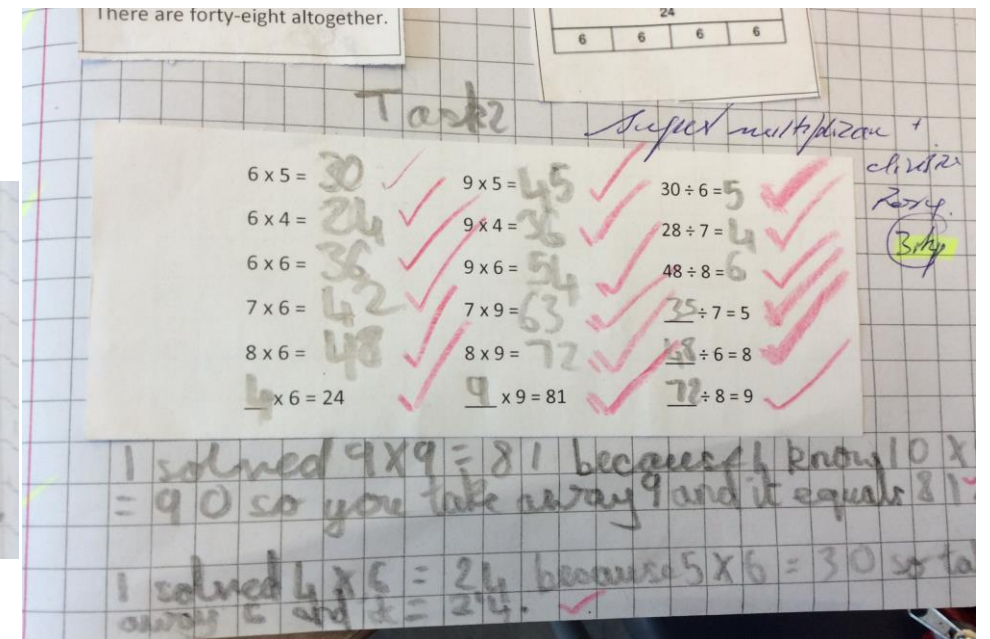 There are forty-eight altogether.
24
6 6 6 6
Task2
Super multiplication +
division
6 x 5 = 30
6 x 4 = 24
6 x 6 = 36
7 x 6 = 42
8 x 6 = 48
4 x 6 = 24
9 x 5 = 45
9 x 4 = 36
9 x 6 = 54
7 x 9 = 63
8 x 9 = 72
9 x 9 = 81
30 ÷ 6 = 5
28 ÷ 7 = 4
48 ÷ 8 = 6
35 ÷ 7 = 5
48 ÷ 6 = 8
72 ÷ 8 = 9
I solved 9X9 = 81 because I know 10 X
= 90 so you take away 9 and it equals 81
I solved 4 X 6 = 24 because 5 X 6 = 30 so ta
away 6 and = 24.